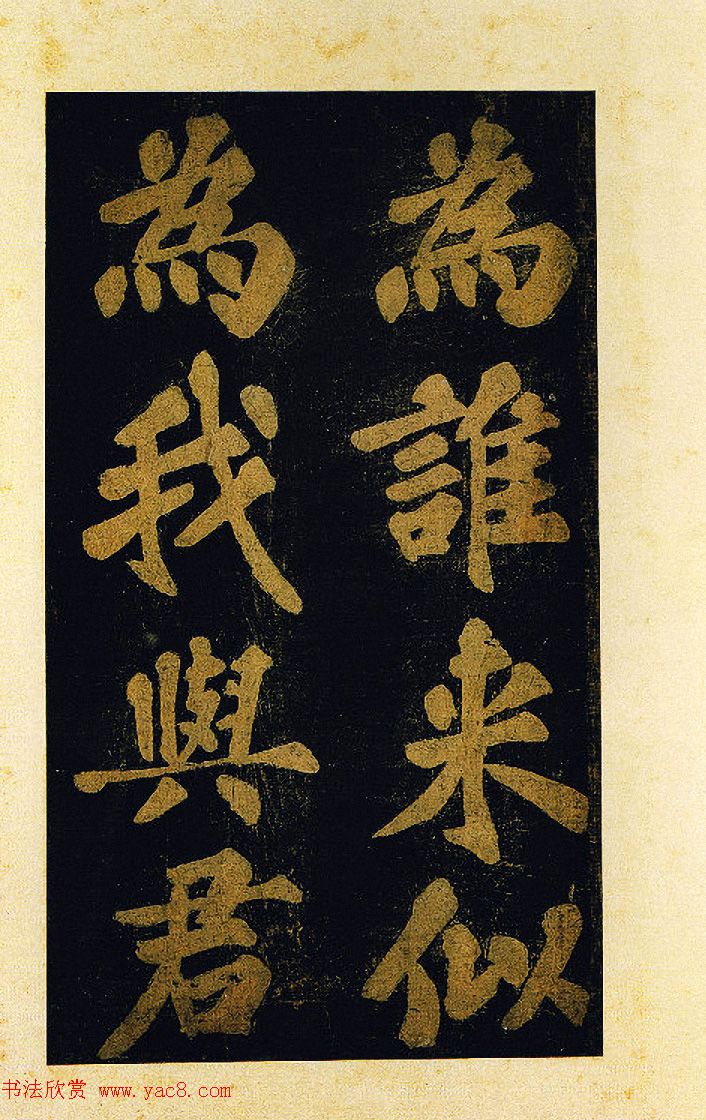 為誰来似
為我與君
书法欣赏 www.yac8.com